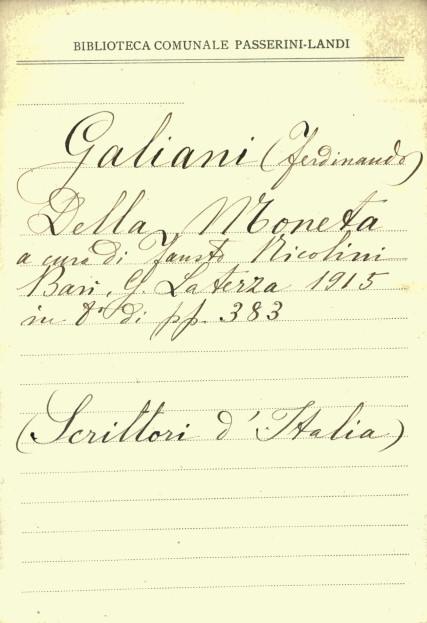 BIBLIOTECA COMUNALE PASSERINI-LANDI
Galiani (Ferdinando)
Della Moneta
a cura di Fausto Nicolini
Bari, G. Laterza 1915
in 8° di pp. 383
(Scrittori d'Italia)